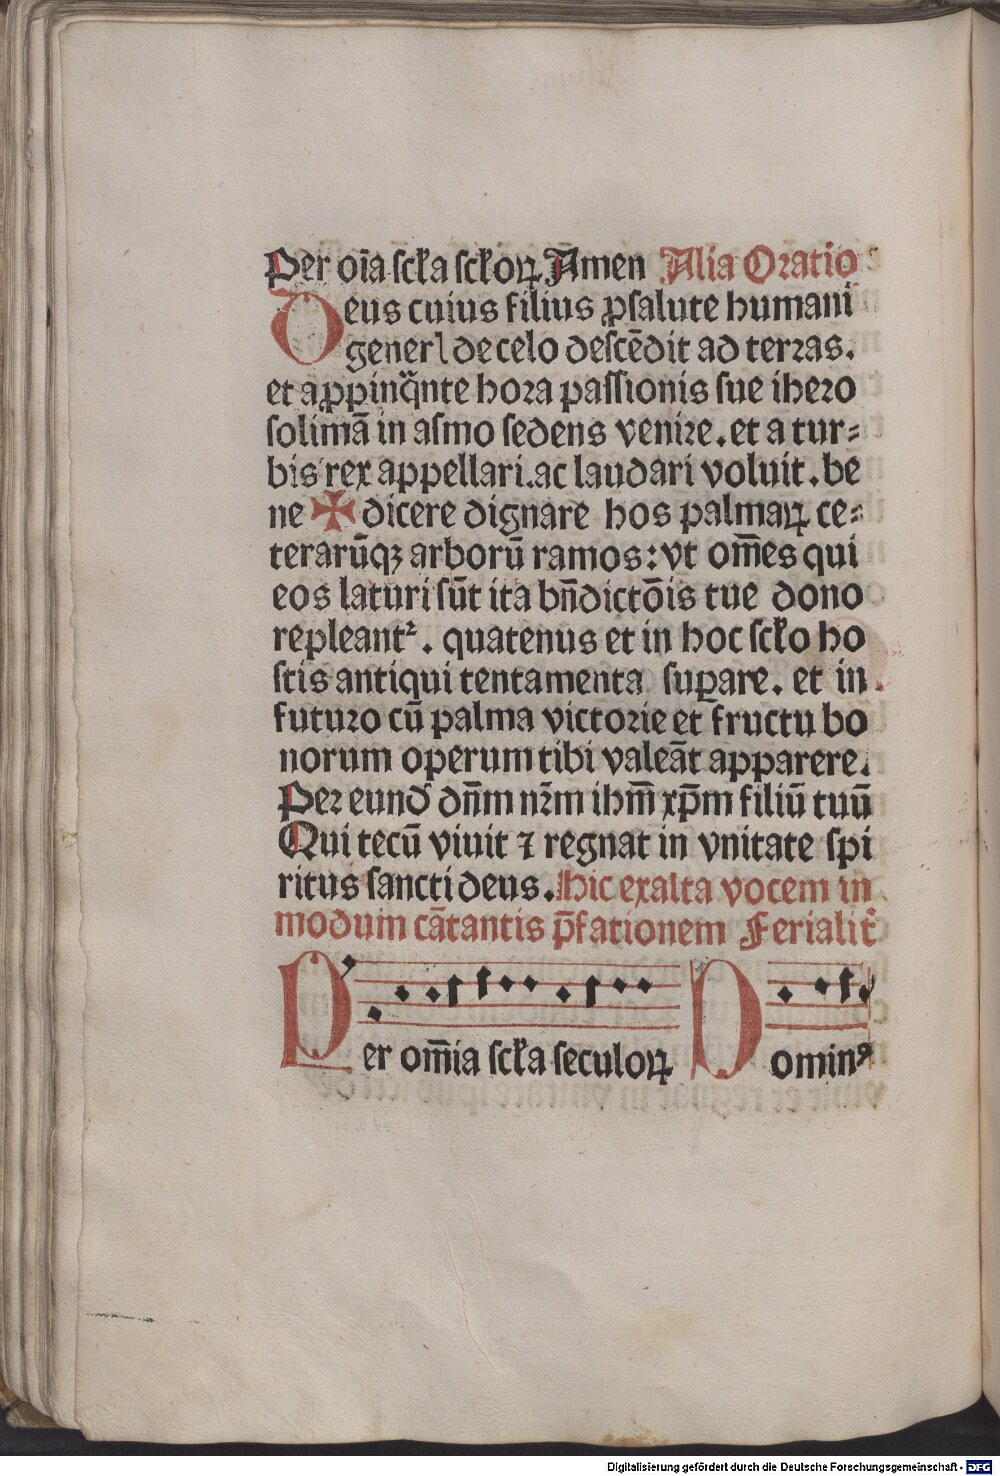 Per oīa scƚa scƚoꝝ Amen Alia Oratio
Deus cuius filius ꝓsalute humani
generꝭ de celo descēdit ad terras.
et aꝓpinq̃nte hora passionis sue ihero
solimā in asino sedens venire. et a tur⸗
bis rex appellari. ac laudari voluit. be
ne ✠ dicere dignare hos palmaꝝ ce⸗
terarūqꝫ arborū ramos: vt om̄es qui
eos laturi sūt ita bn̄dictōis tue dono
repleantᷣ. quatenus et in hoc scƚo ho
stis antiqui tentamenta suꝑare. et in
futuro cū palma victorie et fructu bo
norum operum tibi valeāt apparere.
Per eund̓ dn̄m nr̄m ihm̄ xp̄m filiū tuū
Qui tecū viuit ⁊ regnat in vnitate spi
ritus sancti deus. Hic exalta vocem in
modum cātantis p̄fationem Ferialit̓
Per om̄nia scƚa seculoꝝ Dominꝰ
Digitalisierung gefördert durch die Deutsche Forschungsgemeinschaft - DFG